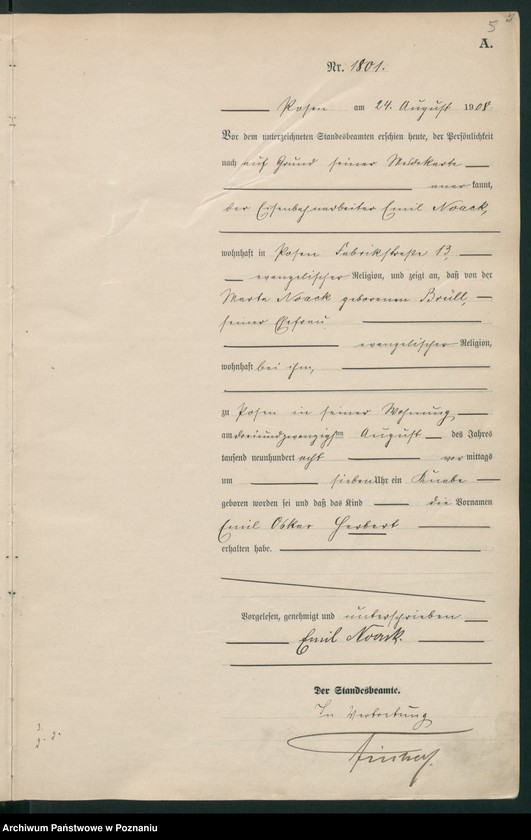 5
A.
Nr. 1801.
Posen am 24. August 1908.
Vor dem unterzeichneten Standesbeamten erschien heute, der Persönlichkeit
nach auf Grund seiner Meldekarte
anerkannt,
der Eisenbahnarbeiter Emil Noack,
wohnhaft in Posen Fabrikstraße 13,
evangelischer Religion, und zeigt an, daß von der
Marta Noack geborenen Brüll,
seiner Ehefrau
evangelischer Religion,
wohnhaft bei ihm,
zu Posen in seiner Wohnung
am dreiundzwanzigsten August des Jahres
tausend neunhundert acht vormittags
um sieben Uhr ein Knabe
geboren worden sei und daß das Kind die Vornamen
Emil Oskar Herbert
erhalten habe.
Vorgelesen, genehmigt und unterschrieben
Emil Noack.
Der Standesbeamte.
In Vertretung
Archiwum Państwowe w Poznaniu